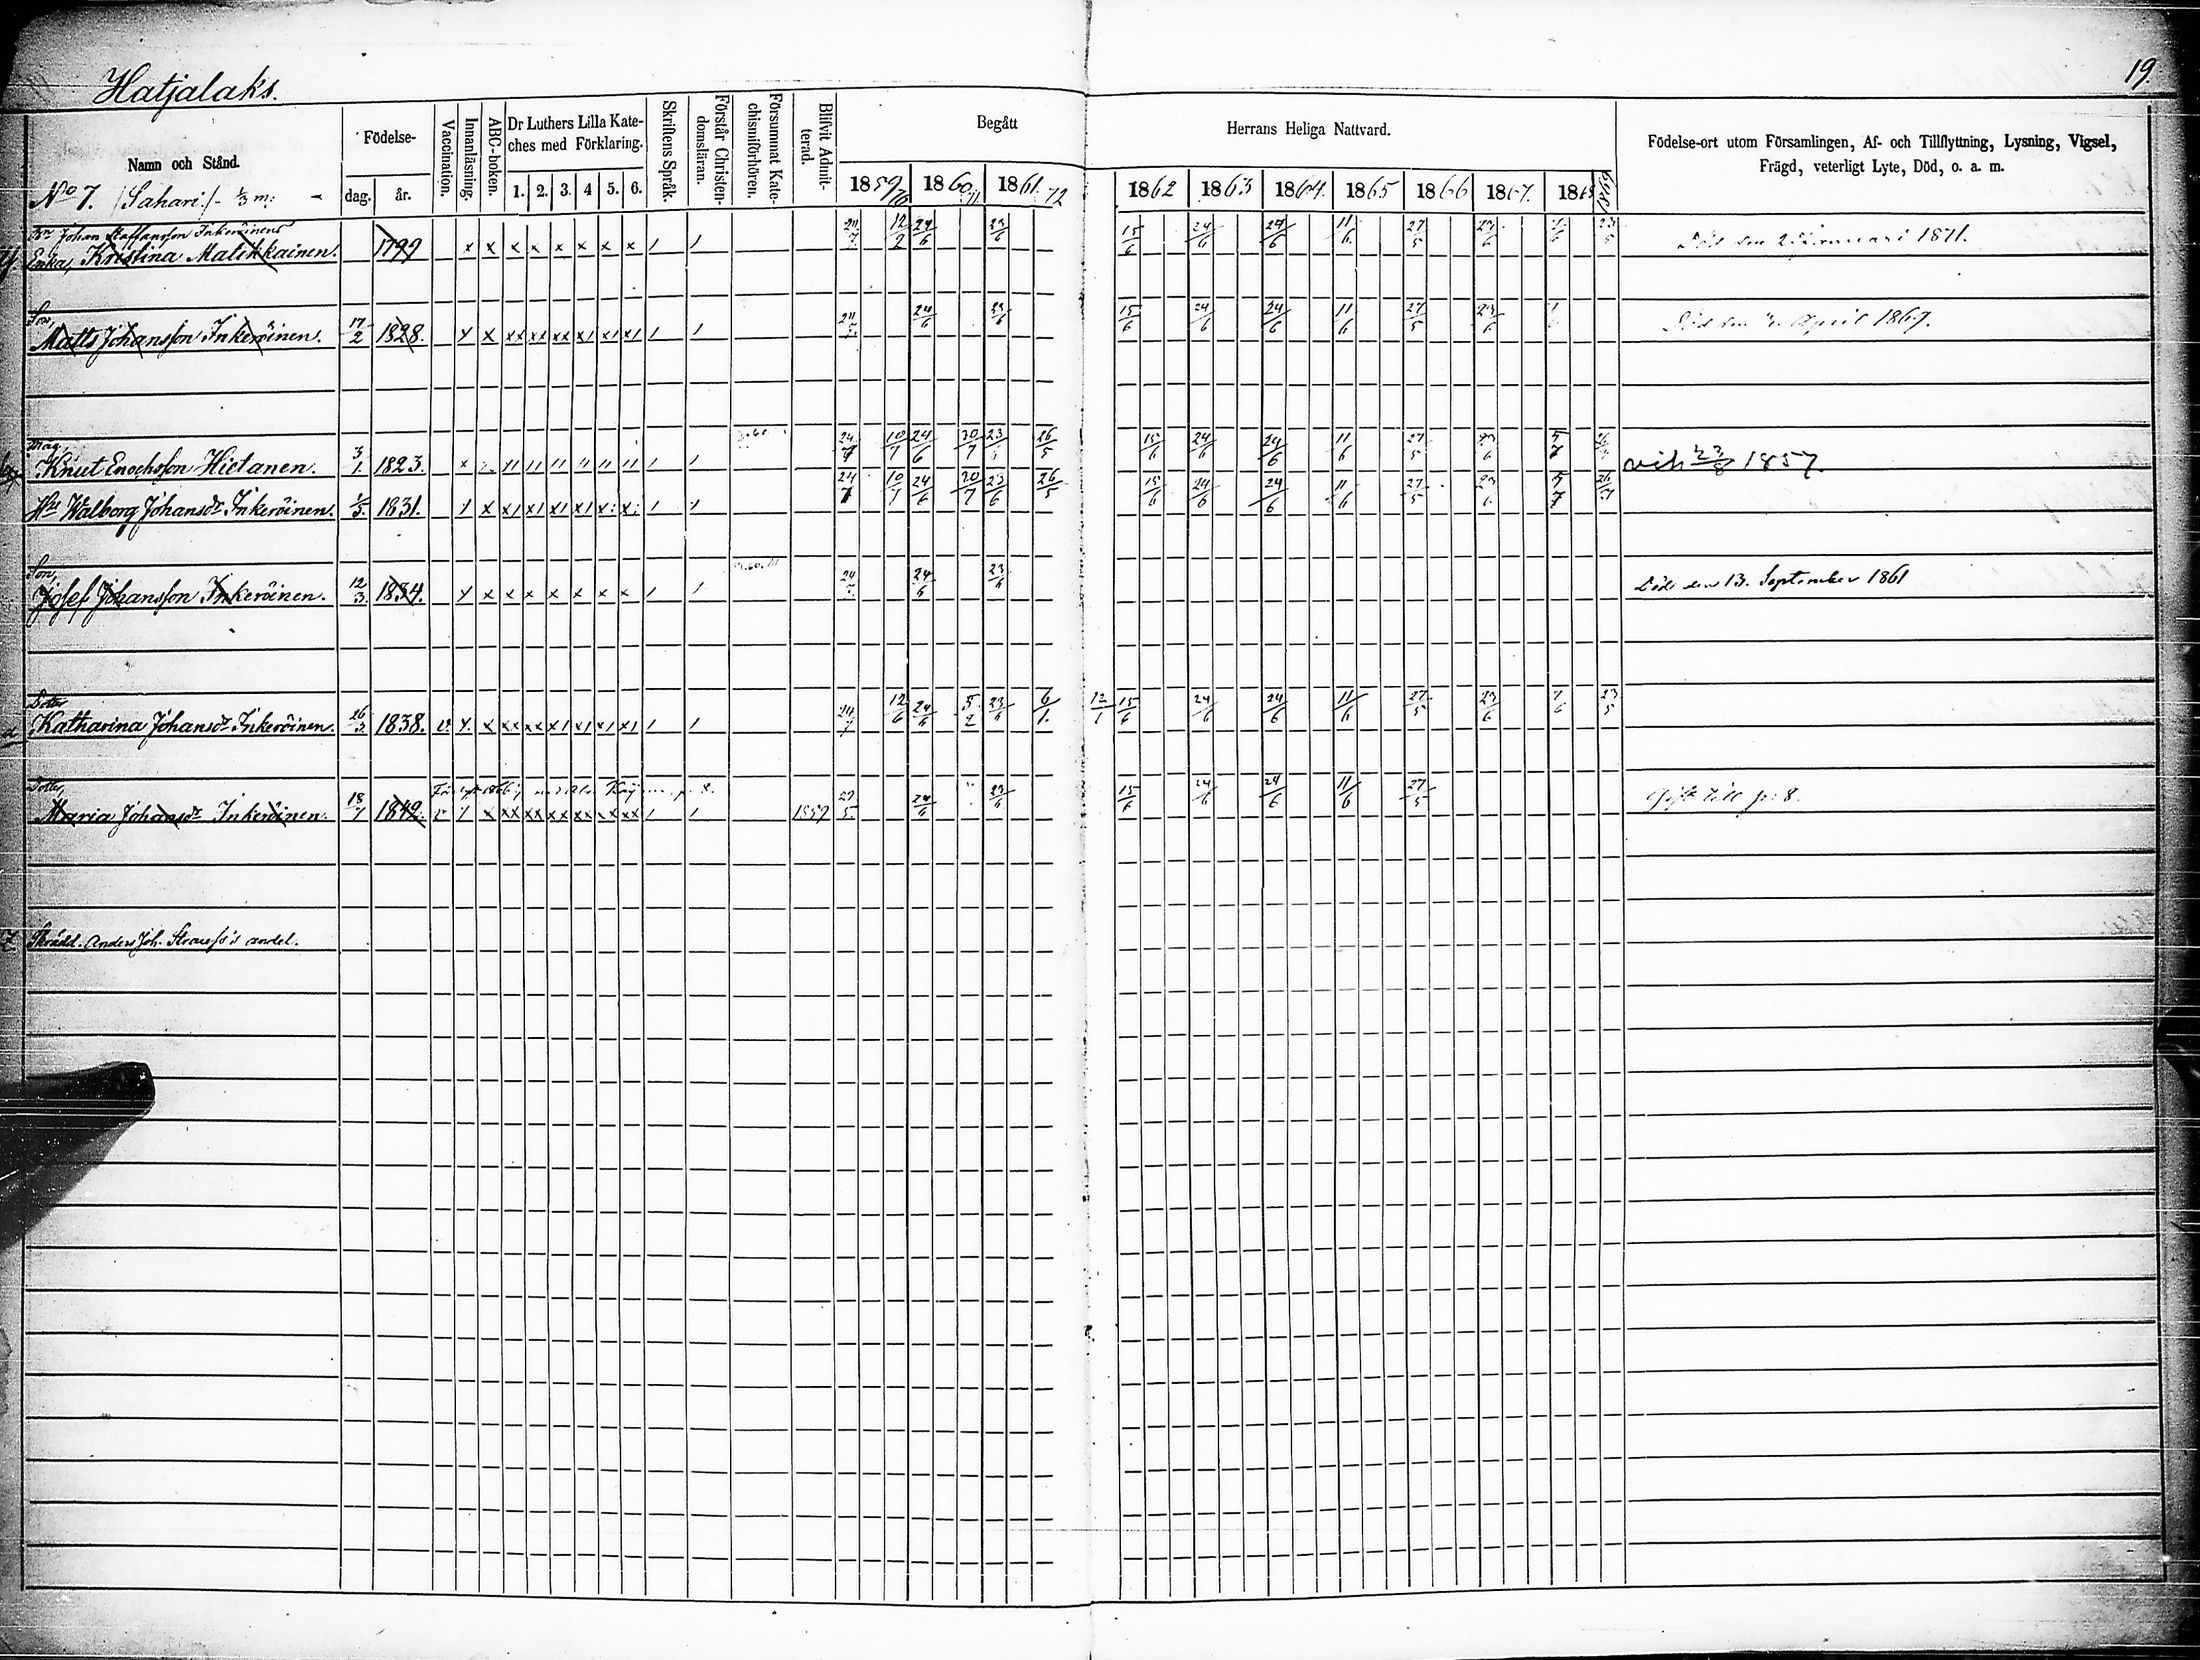 Hatjalaks.
19.
Namn och Stånd.
Födelse-
dag. år.
Vaccination.
Innanläsning.
ABC-boken.
Dr Luthers Lilla Kate-
ches med Förklaring.
1. 2. 3. 4 5. 6.
Skriftens Språk.
Förstår Christen-
domsläran.
Försummat Kate-
chismiförhören.
Blifvit Admit-
terad.
Begått
Herrans Heliga Nattvard.
1859 1860 1861. 72 1862 1863 1864. 1865 1866 1867. 1868 1869
Födelse-ort utom Församlingen, Af- och Tillflyttning, Lysning, Vigsel,
Frägd, veterligt Lyte, Död, o. a. m.
No 7. /Sahari/- 1/3 m:
Bn Johan Staffansson Inkeröinens
Enka, Kristina Matikkainen. 1799 x x x x x x x x 12/2 24/6 23/6 15/6 24/6 24/6 11/6 27/5 23/6 23/5 1871.
Son,
Matts Johansson Inkeröinen. 17/2 1828. 24/6 23/6 15/6 24/6 24/6 11/6 27/5 23/6 Död den April 1869.
Måg,
Knut Enochsson Hietanen. 3/1. 1823. 24/7 10/7 24/6 30/7 23/6 26/5 15/6 24/6 24/6 11/6 27/5 23/6 5/7 23/8 1857
Hu Walborg Johansdr Inkeröinen. 1/5. 1831. 24/7 10/7 24/6 30/7 23/6 26/5 15/6 24/6 24/6 11/6 27/5 23/6 5/7
Son,
Josef Johansson Inkeröinen. 12/3. 1834. x x x x x x x 24/7 24/6 23/6 Död den 13. September 1861
Dotter
Katharina Johansdr Inkeröinen. 26/3. 1838. v. 24/7 12/6 24/6 5/2 23/6 6/1. 12/1 15/6 24/6 24/6 11/6 27/5 23/6 7/6 23/5
Dotter,
Maria Johansdr Inkeröinen. 18/7 1842. v 1859 24/6 23/6 15/6 24/6 24/6 11/6 27/5 Gift till p: 8.
Skrädd. Anders Joh. Strauss's andel.